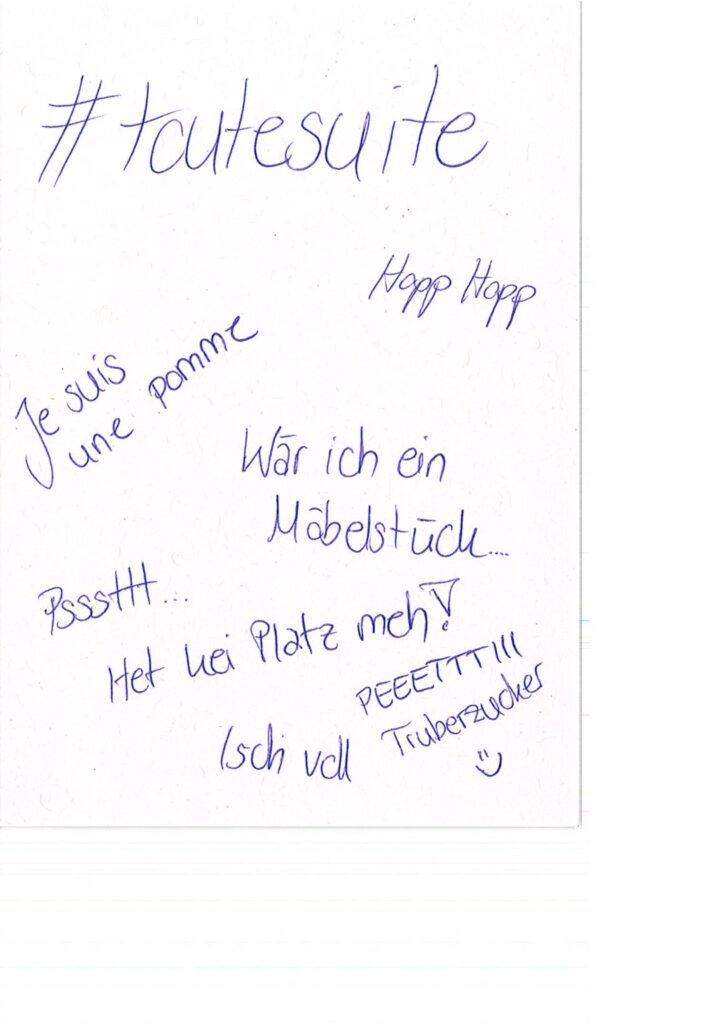 #toutesuite
Hopp Hopp
Je suis
une pomme
Wär ich ein
Möbelstück...
Psssttt...
Het kei Platz meh!
PEEETTT!!!
Truberzucker
Isch voll